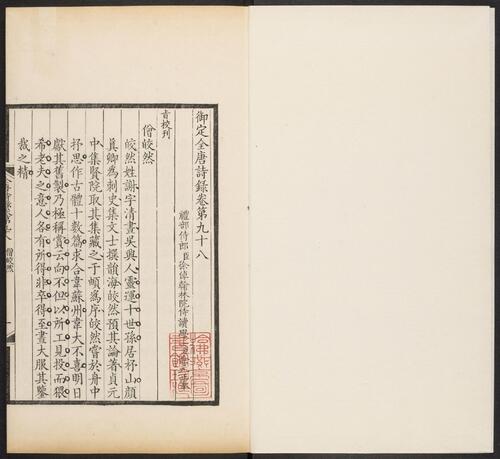 御定全唐詩錄卷第九十八
禮部侍郎臣徐倬翰林院侍讀學
旨校刊
僧皎然
皎然姓謝字清晝吳興人靈運十世孫居杼山顏
真卿為刺史集文士撰韻海皎然預其論著貞元
中集賢院取其集藏之于頔為序皎然嘗於舟中
抒思作古體十數篇求合韋蘇州韋大不喜明日
獻其舊製乃極稱賞云向不但以所工見投而猥
希老夫之意人各有所得非卒得至晝大服其鑒
裁之精
僧皎然